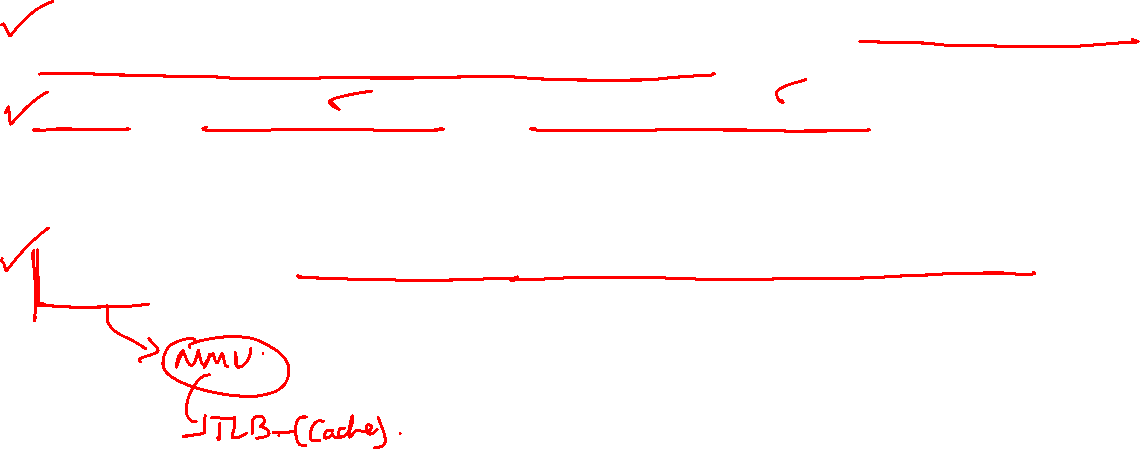 MMU.
TLB-(Cache).